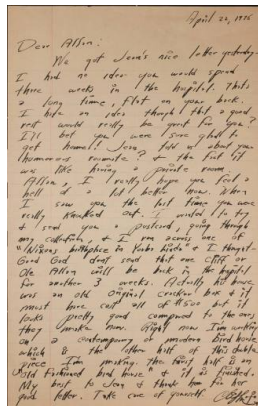 April 20, 1975
Dear Allen:
We got Jean's nice letter yesterday.
I had no idea you would spend
three weeks in the hospital. Thats
a long time, flat on your back.
I hate an idea though that a good
rest would really be great for you?
I'll bet you were sure glad to
get home! Jean told us about your
humorous roomate? & the fact it
was like having a private room.
Allen, I really hope you feel a
hell of a lot better now. When
I saw you the last time you were
really knocked out. I wanted to try
& send you a postcard, going through
my collection, & I ran across one of
"Nixons birthplace in Yorba Linda" & I thought-
Good God don't send that one
Ole Allen will be back in the hospital
for another 3 weeks. Actually his house
was an old original cracker box & it
must have cost all of $500 but it
looks pretty good compared to the ones
they make now. Right now I'm working
on a contemporary or modern bird house
which is the other half of this double
piece I'm making. The first half is an
"old fashioned bird house" & it is finished.
My best to Jean & thank him for her
good letter. Take care of yourself.